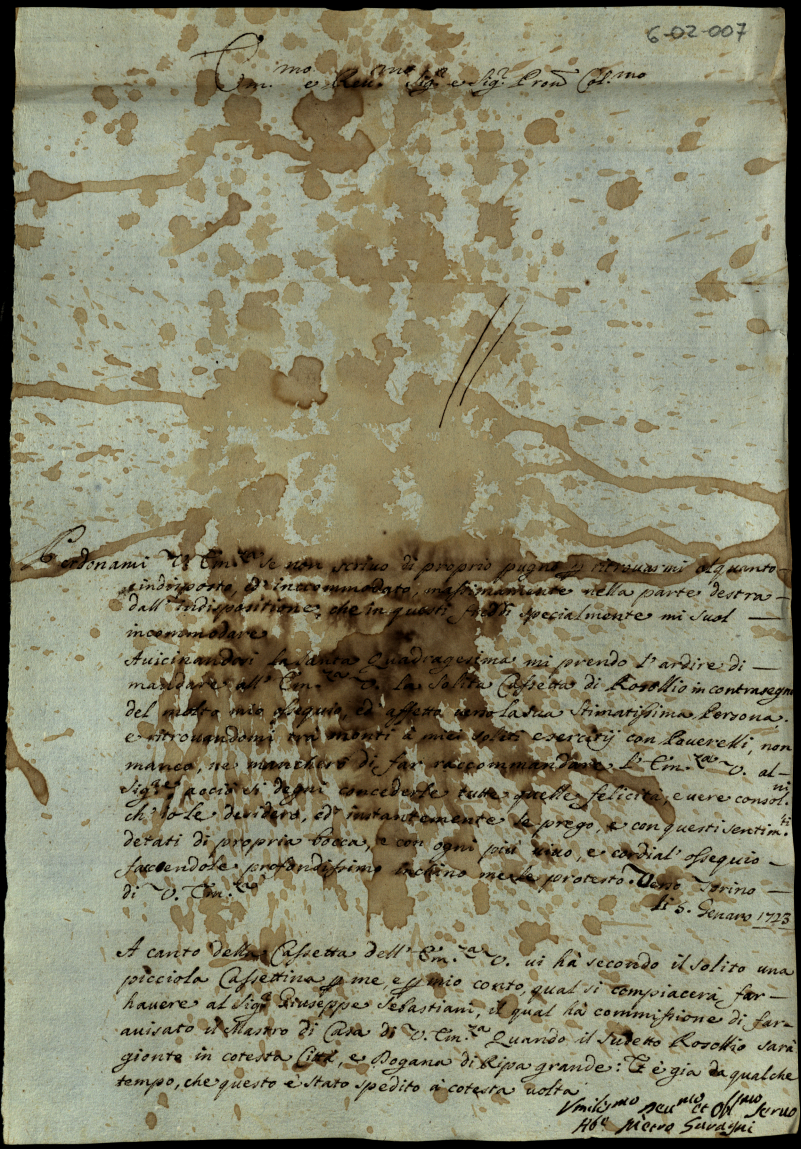 6-02-007
Em.mo e Rev.mo Sig.r e Sig.r Pron Col.mo
Perdonami V. Em.za se non scrivo di proprio pugno p ritrovarmi alquanto
indisposto, ed' inccommodato, massimamente nella parte destra
dall' indispositione, che in questi freddi specialmente mi suol
incommodare
Avicinandosi la santa Quadragesima mi prendo l'ardire di
mandare all' Em.za V. la solita Cassetta di Rosollio in contrasegno
del molto mio ossequio, ed' affetto verso la sua Stimatissima Persona,
e ritrovandomi tra monti à miei soliti esercitij con Poverelli, non
manco, ne mancherò di far raccommandare l' Em.za V. al
Sig.re acciò si degni concederle tutte quelle felicità, e vere consol.ni
ch' io le desidero, ed' instantemente le prego, e con questi sentim.ti
detati di propria bocca, e con ogni più vivo, e cordial' ossequio
faccendole profondissimo inchino me le protesto. Verso Torino
di V. Em.za
li 5. Genaro 1723
A canto della Cassetta dell' Em.za V. vi hà secondo il solito una
picciola Cassettina p me, e p mio conto, qual si compiacerà far
havere al Sig.r Giuseppe Sebastiani, il qual hà commissione di far
avisato il Mastro di Casa di V. Em.za Quando il sudetto Rosollio sarà
gionto in cotesta Città, e Dogana di Ripa grande: Et è gia da qualche
tempo, che questo è stato spedito à cotesta volta
Umilis.mo Dev.mo et Obl.mo Servo
Pietro